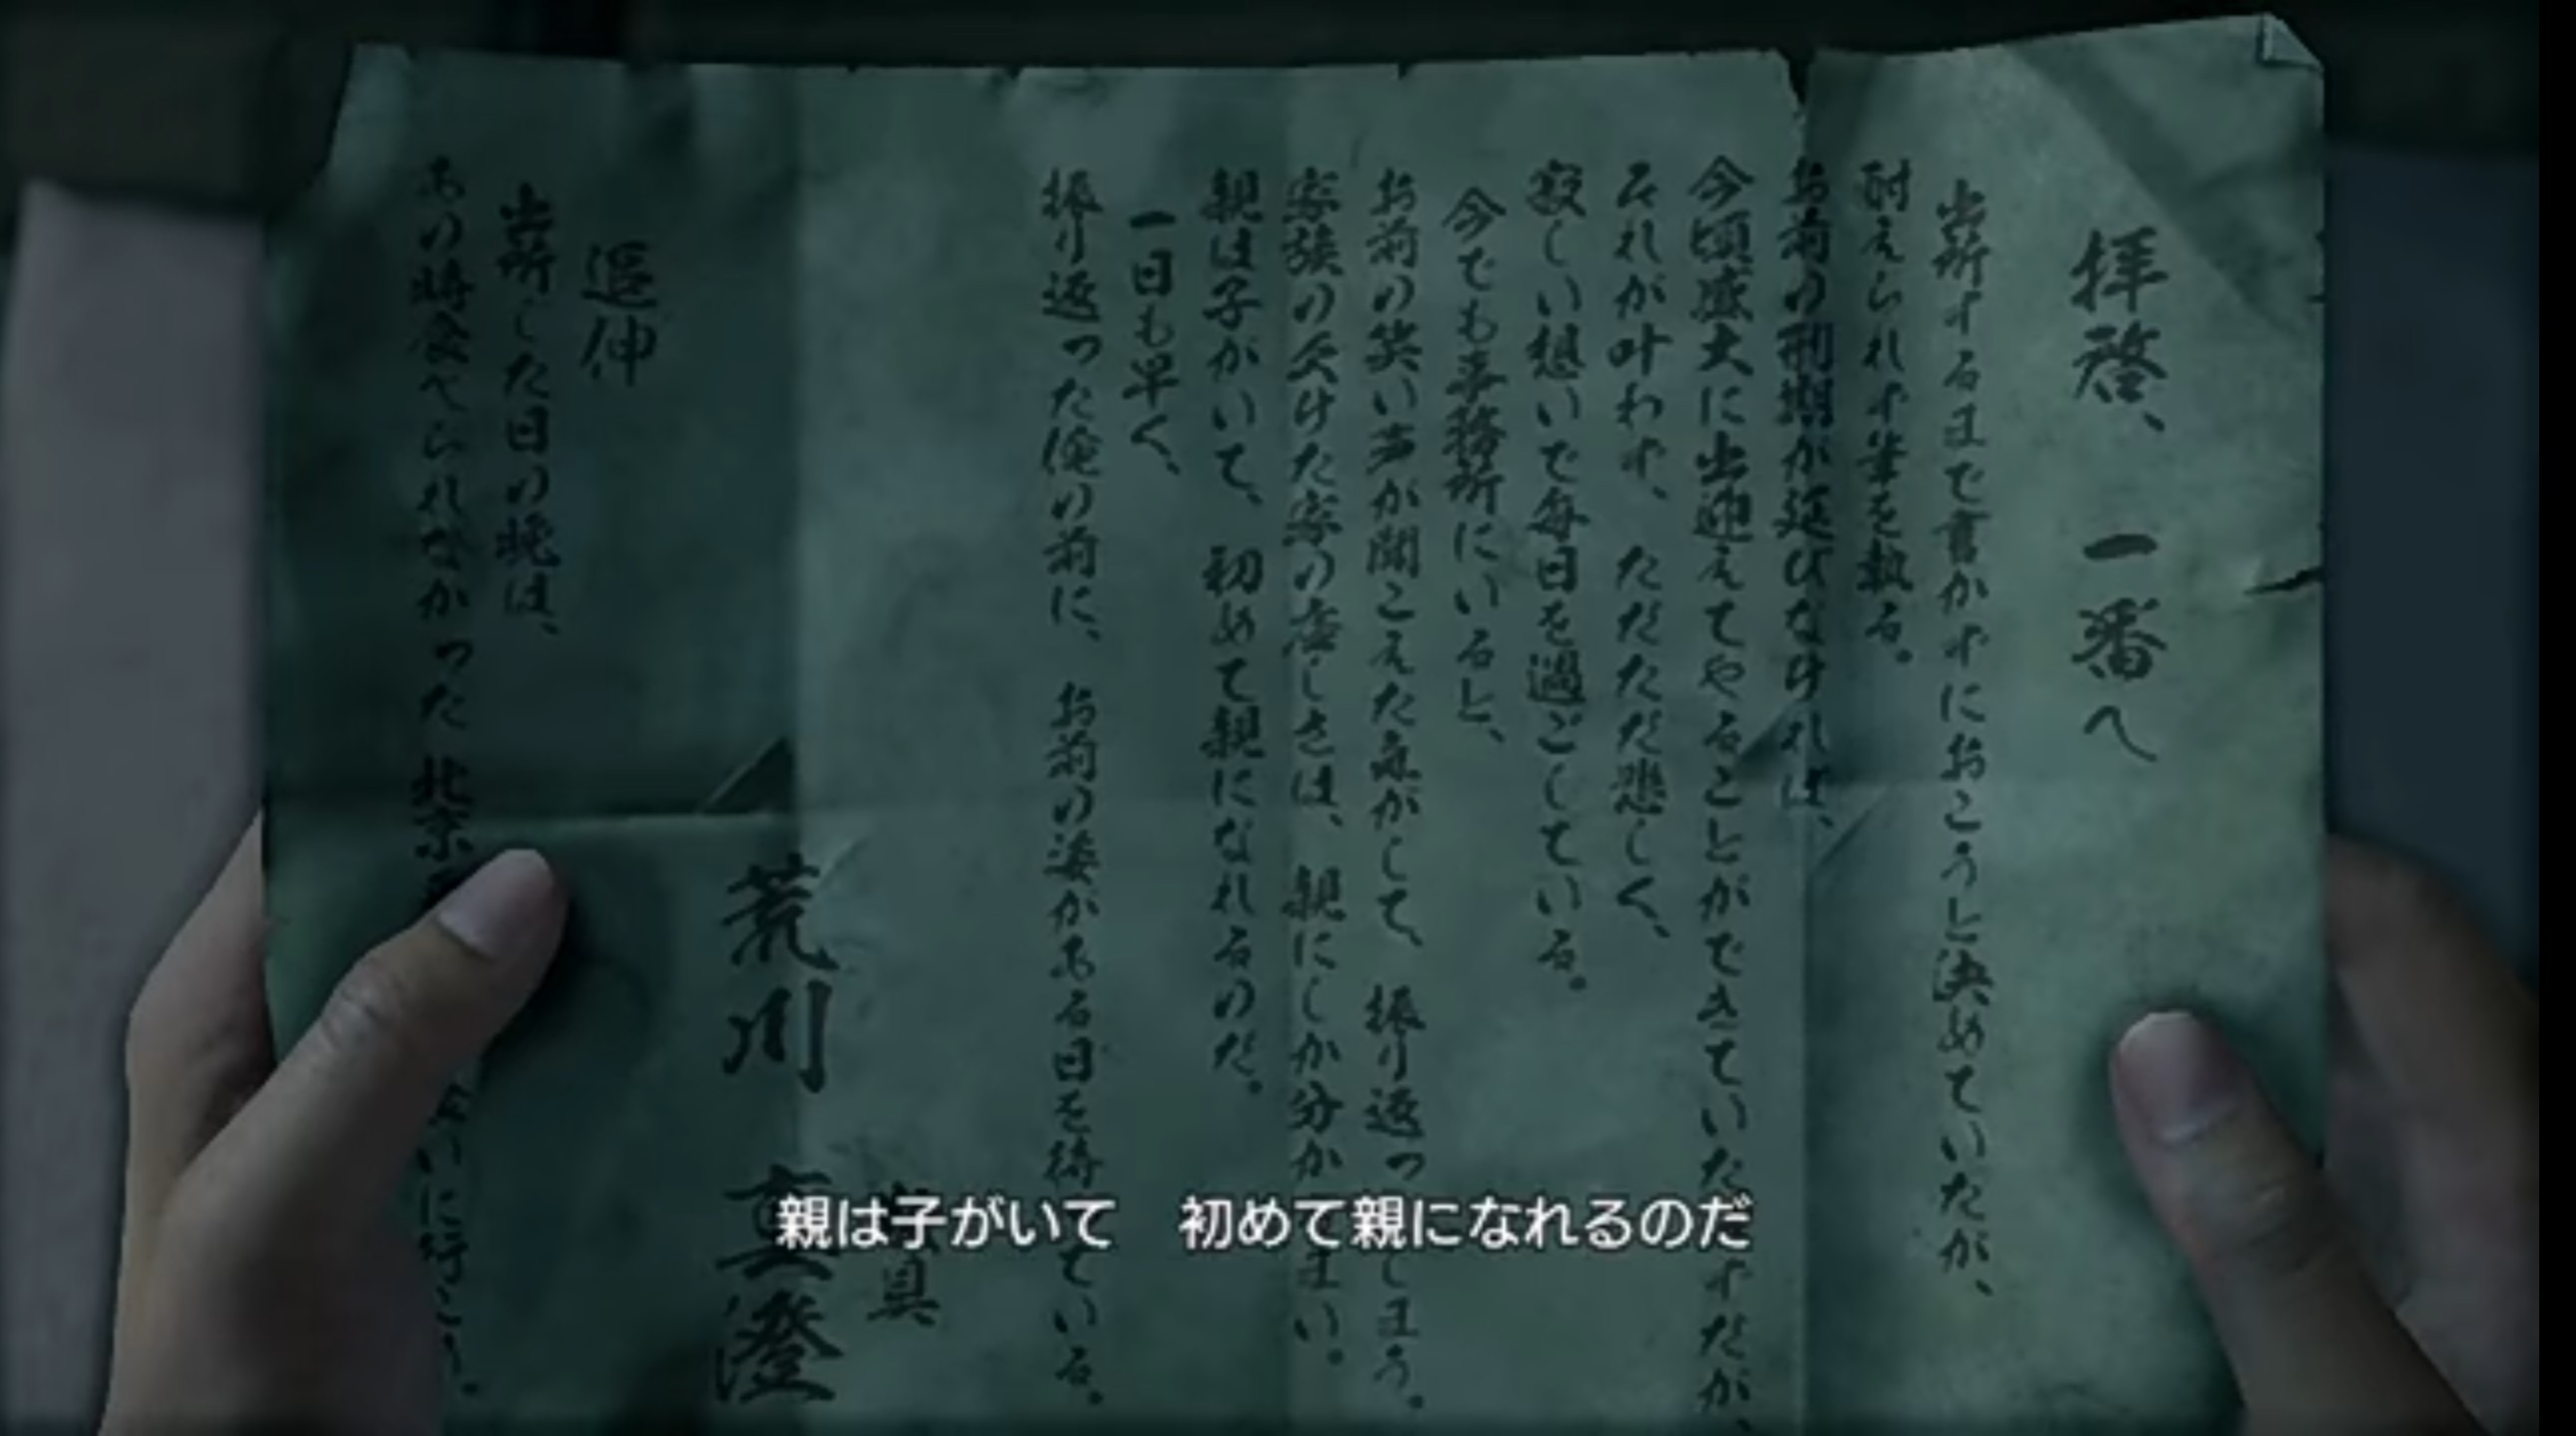 拝啓、一番へ
出所するまで書かずにおこうと決めていたが、
耐えられず筆を執る。
お前の刑期が延びなければ、
今頃盛大に出迎えてやることができていたはずだが、
それが叶わず、ただただ悲しく、
寂しい想いで毎日を過ごしている。
今でも事務所にいると、
お前の笑い声が聞こえた気がして、振り返っ
しまう。
家族の欠けた家の虚しさは、親にしか分か
まい。
親は子がいて、初めて親になれるのだ。
一日も早く、
振り返った俺の前に、お前の姿がある日を待
ている。
具
荒川 真澄
追伸
出所した日の晩は、
あの時食べられなかった北京
食いに行こう。
親は子がいて 初めて親になれるのだ